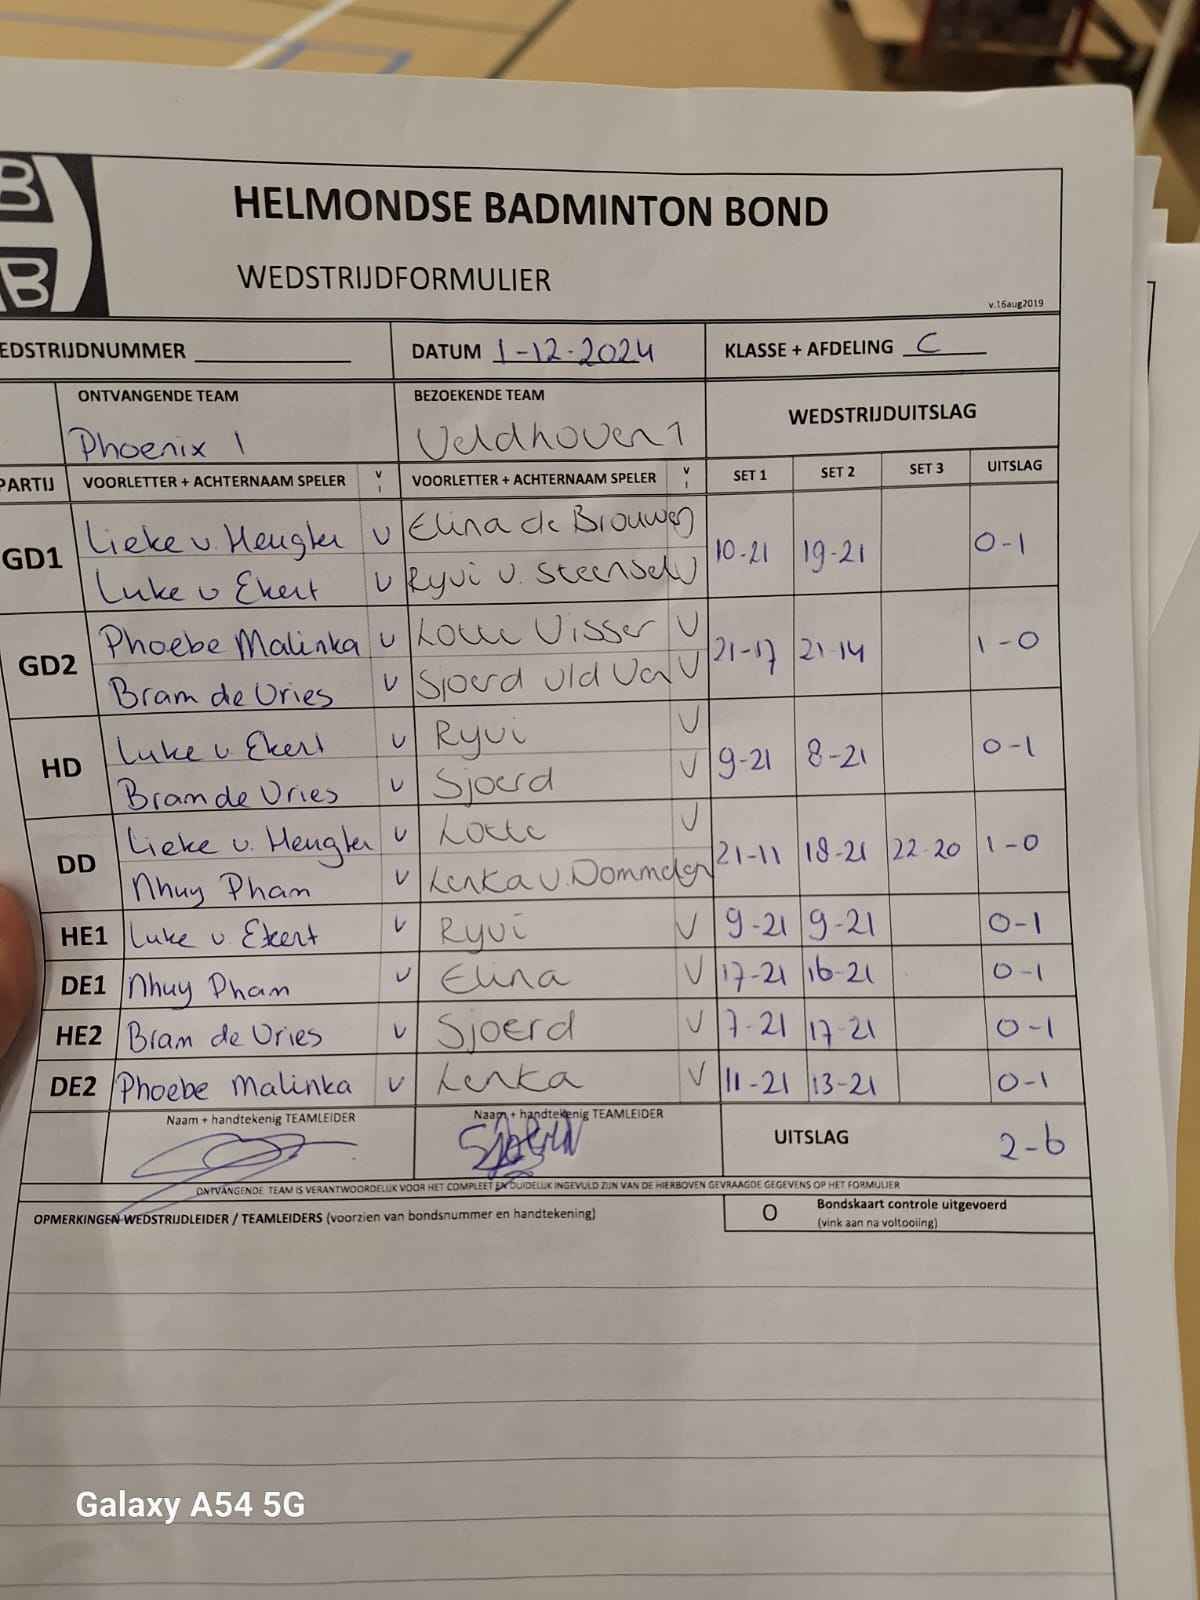 B
B
HELMONDSE BADMINTON BOND
WEDSTRIJDFORMULIER
v.16aug2019
EDSTRIJDNUMMER
DATUM 1-12-2024
KLASSE + AFDELING C
ONTVANGENDE TEAM
BEZOEKENDE TEAM
WEDSTRIJDUITSLAG
Phoenix 1
Veldhoven 1
PARTIJ VOORLETTER + ACHTERNAAM SPELER V I VOORLETTER + ACHTERNAAM SPELER V I SET 1 SET 2 SET 3 UITSLAG
GD1 Lieke v. Hengter V Elina de Brouwer 10-21 19-21 0-1
Luke v Ekert V Ryvi v. Steensel V
GD2 Phoebe Malinka V Lotte Visser V 21-17 21-14 1-0
Bram de Vries V Sjoerd v/d Ven V
HD Luke v. Ekert V Ryvi V 9-21 8-21 0-1
Bram de Vries V Sjoerd V
DD Lieke v. Hengter V Lotte V 21-11 18-21 22-20 1-0
Nhuy Pham V Lenka v. Dommelen
HE1 Luke v. Ekert V Ryvi V 9-21 9-21 0-1
DE1 Nhuy Pham V Elina V 17-21 16-21 0-1
HE2 Bram de Vries V Sjoerd V 7-21 17-21 0-1
DE2 Phoebe Malinka V Lenka V 11-21 13-21 0-1
Naam + handtekenig TEAMLEIDER
Naam + handtekenig TEAMLEIDER
Sjoerd
UITSLAG 2-6
ONTVANGENDE TEAM IS VERANTWOORDELIJK VOOR HET COMPLEET EN DUIDELIJK INGEVULD ZIJN VAN DE HIERBOVEN GEVRAAGDE GEGEVENS OP HET FORMULIER
OPMERKINGEN WEDSTRIJDLEIDER / TEAMLEIDERS (voorzien van bondsnummer en handtekening)
O Bondskaart controle uitgevoerd
(vink aan na voltooiing)
Galaxy A54 5G